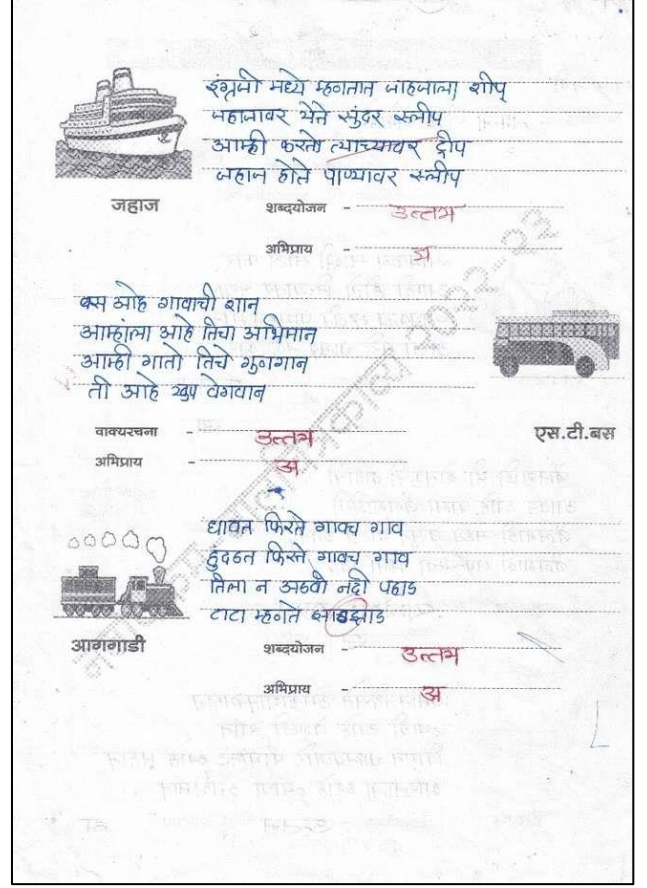 इंग्रजी मध्ये म्हणतात जाहजाला शीप
जहाजावर येते सुंदर स्लीप
आम्ही करतो त्याच्यावर ट्रीप
जहाज होते पाण्यावर स्लीप
जहाज
शब्दयोजन - उत्तम
अभिप्राय - अ
बस आहे गावाची शान
आम्हांला आहे तिचा अभिमान
आम्ही गातो तिचे गुणगान
ती आहे खुप वेगवान
एस.टी.बस
वाक्यरचना - उत्तम
अभिप्राय - अ
धावत फिरते गावच गाव
हुंदडत फिरते गावच गाव
तिला न अडवी नदी पहाड
टाटा म्हणते झाडझाड
आगगाडी
शब्दयोजन - उत्तम
अभिप्राय - अ
२०२२-२३